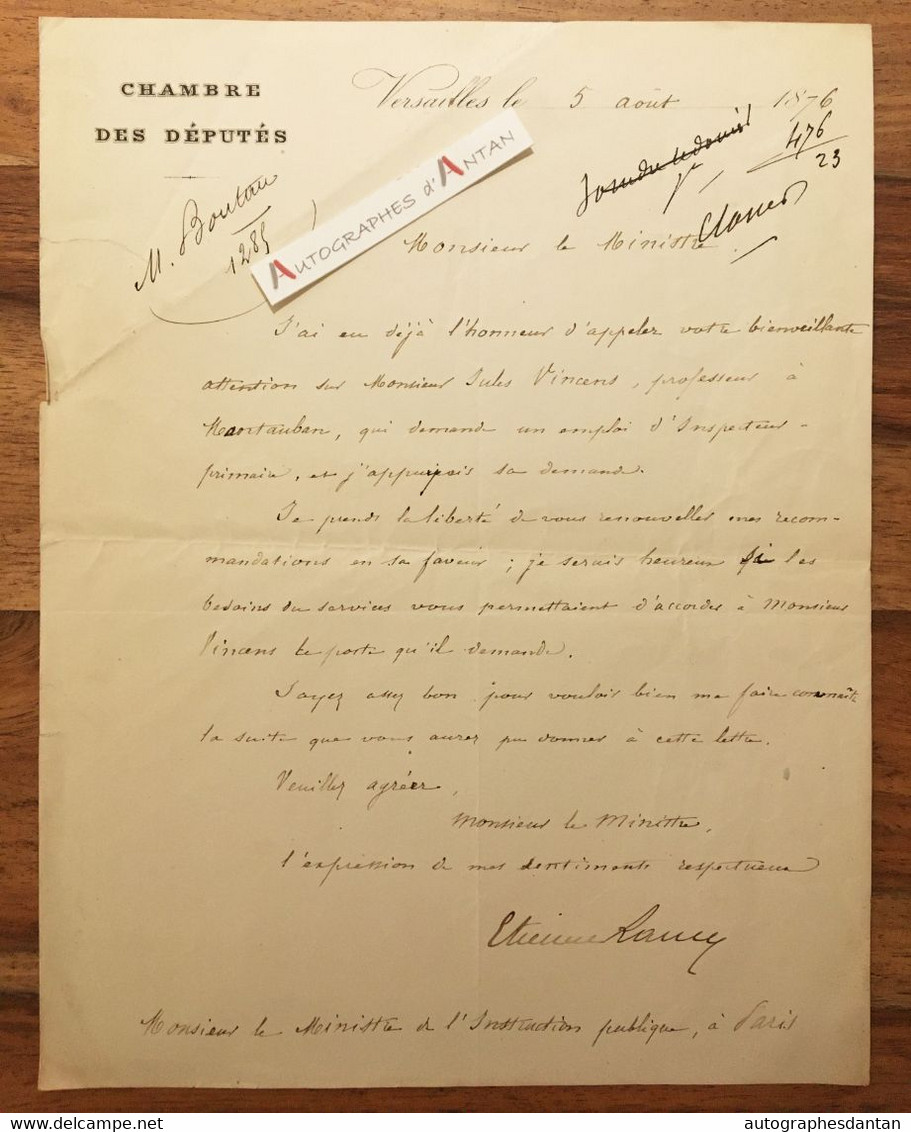 CHAMBRE
DES DÉPUTÉS
Versailles le 5 août 1876
476
23
Classer
M. Boutan
1285
AUTOGRAPHES d'ANTAN
Monsieur le Ministre
J'ai eu déjà l'honneur d'appeler votre bienveillante
attention sur Monsieur Jules Vincens, professeur à
Montauban, qui demande un emploi d'Inspecteur-
primaire, et j'appuyais sa demande.
Je prends la liberté de vous renouveller mes recom-
mandations en sa faveur ; je serais heureux si les
besoins du services vous permettaient d'accorder à Monsieur
Vincens le poste qu'il demande.
Soyez assez bon pour vouloir bien me faire connaître
la suite que vous aurez pu donner à cette lettre.
Veuillez agréer,
Monsieur le Ministre,
l'expression de mes sentiments respectueux
Etienne Lamy
Monsieur le Ministre de l'Instruction publique, à Paris
delcampe.net
autographesdantan